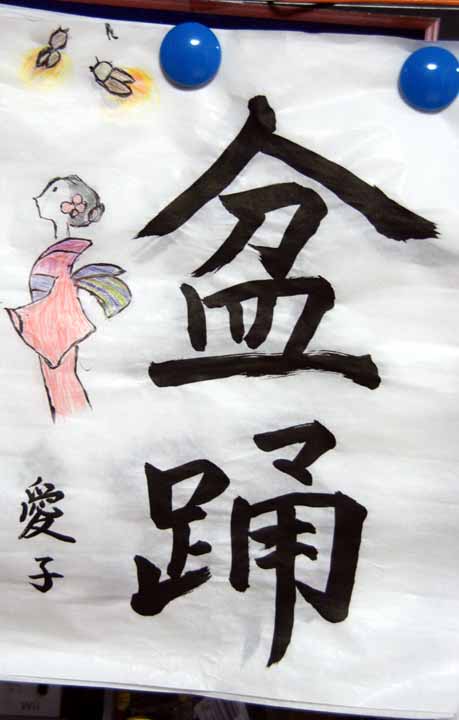 盆踊
愛子
Wii